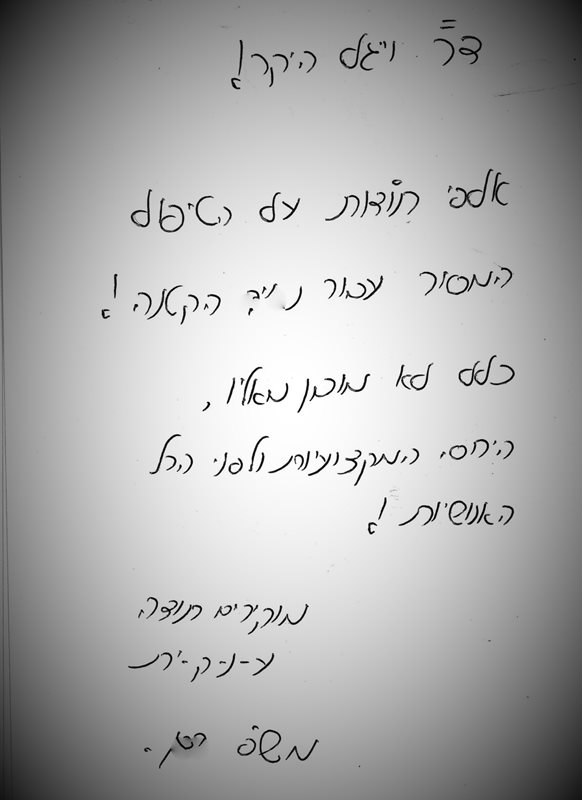 ד"ר ויגל היקר!
אלפי תודות על הטיפול
המסור עבור הקטנה!
כלל לא מובן מאליו,
היחס, המקצועיות ולפני הכל
האנושיות!
מוקירים תודה
ע-נ-ק-ית
משפ'